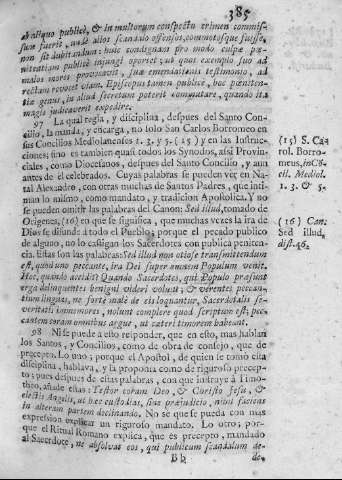 385
publicè, & in multorum conspectu crimen commis-
sum fuerit, undè alios scandalo offensos, commotosque fuisse,
non sit dubitandum: huic condignam pro modo culpæ pœ-
nitentiam publicè injungi oportet; ut quos exemplo suo ad
malos mores provocavit, suæ emendationis testimonio, ad
rectam revocet vitam. Episcopus tamen publicæ, hoc pœniten-
tiæ genus, in aliud secretum poterit commutare, quando ita
magis judicaverit expedire.
97 La qual regla, y disciplina, despues del Santo Con-
cilio, la manda, y encarga, no solo San Carlos Borromeo en
sus Concilios Mediolanenses 1. 3. y 5. (15) y en las Instruc-
ciones; sino es tambien quasi todos los Synodos, asi Provin-
ciales, como Diocesanos, despues del Santo Concilio, y aun
antes de èl celebrados. Cuyas palabras se pueden ver en Na-
tal Alexandro, con otras muchas de Santos Padres, que inti-
man lo mismo, como mandato, y tradicion Apostolica. Y no
se pueden omitir las palabras del Canon: Sed illud, tomado de
Origenes, (16) en que se significa, que muchas veces la ira de
Dios se difunde à todo el Pueblo; porque el pecado publico
de alguno, no lo castigan los Sacerdotes con publica peniten-
cia. Estas son las palabras: Sed illud non otiosè transmittendum
est, quòd uno peccante, ira Dei super omnem Populum venit.
Hoc, quando accidit? Quando Sacerdotes, qui Populo præsunt
erga delinquentes benigni videri volunt; & verentes peccan-
tium linguas, ne fortè malè de eis loquantur, Sacerdotalis se-
veritatis immemores, nolunt complere quod scriptum est; pec-
cantem coram omnibus argue, ut cæteri timorem habeant.
98 Ni se puede à esto responder, que en esto, mas hablan
los Santos, y Concilios, como de obra de consejo, que de
precepto. Lo uno; porque el Apostol, de quien se tomò esta
disciplina, hablava, y la proponia como de riguroso precep-
to; pues despues de estas palabras, con que instruye à Timo-
theo, añade estas: Testor coram Deo, & Christo Jesu, &
electis Angelis, ut hæc custodias, sine præjudicio, nihil faciens
in alteram partem declinando. No se que se pueda con mas
expresion explicar un riguroso mandato. Lo otro; por-
que el Ritual Romano explica, que es precepto, mandado
al Sacerdote, ne absolvat eos, qui publicum scandalum de-
Bb
de-
(15) S. Ca-
rol. Borro-
meus, in Cō-
cil. Mediol.
1. 3. & 5.
(16) Can.
Sed illud,
dist. 46.